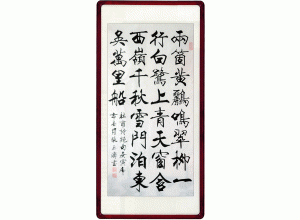 兩箇黃鸝鳴翠柳一
行白鷺上青天窗含
西嶺千秋雪門泊東
吳萬里船
杜甫詩絕句